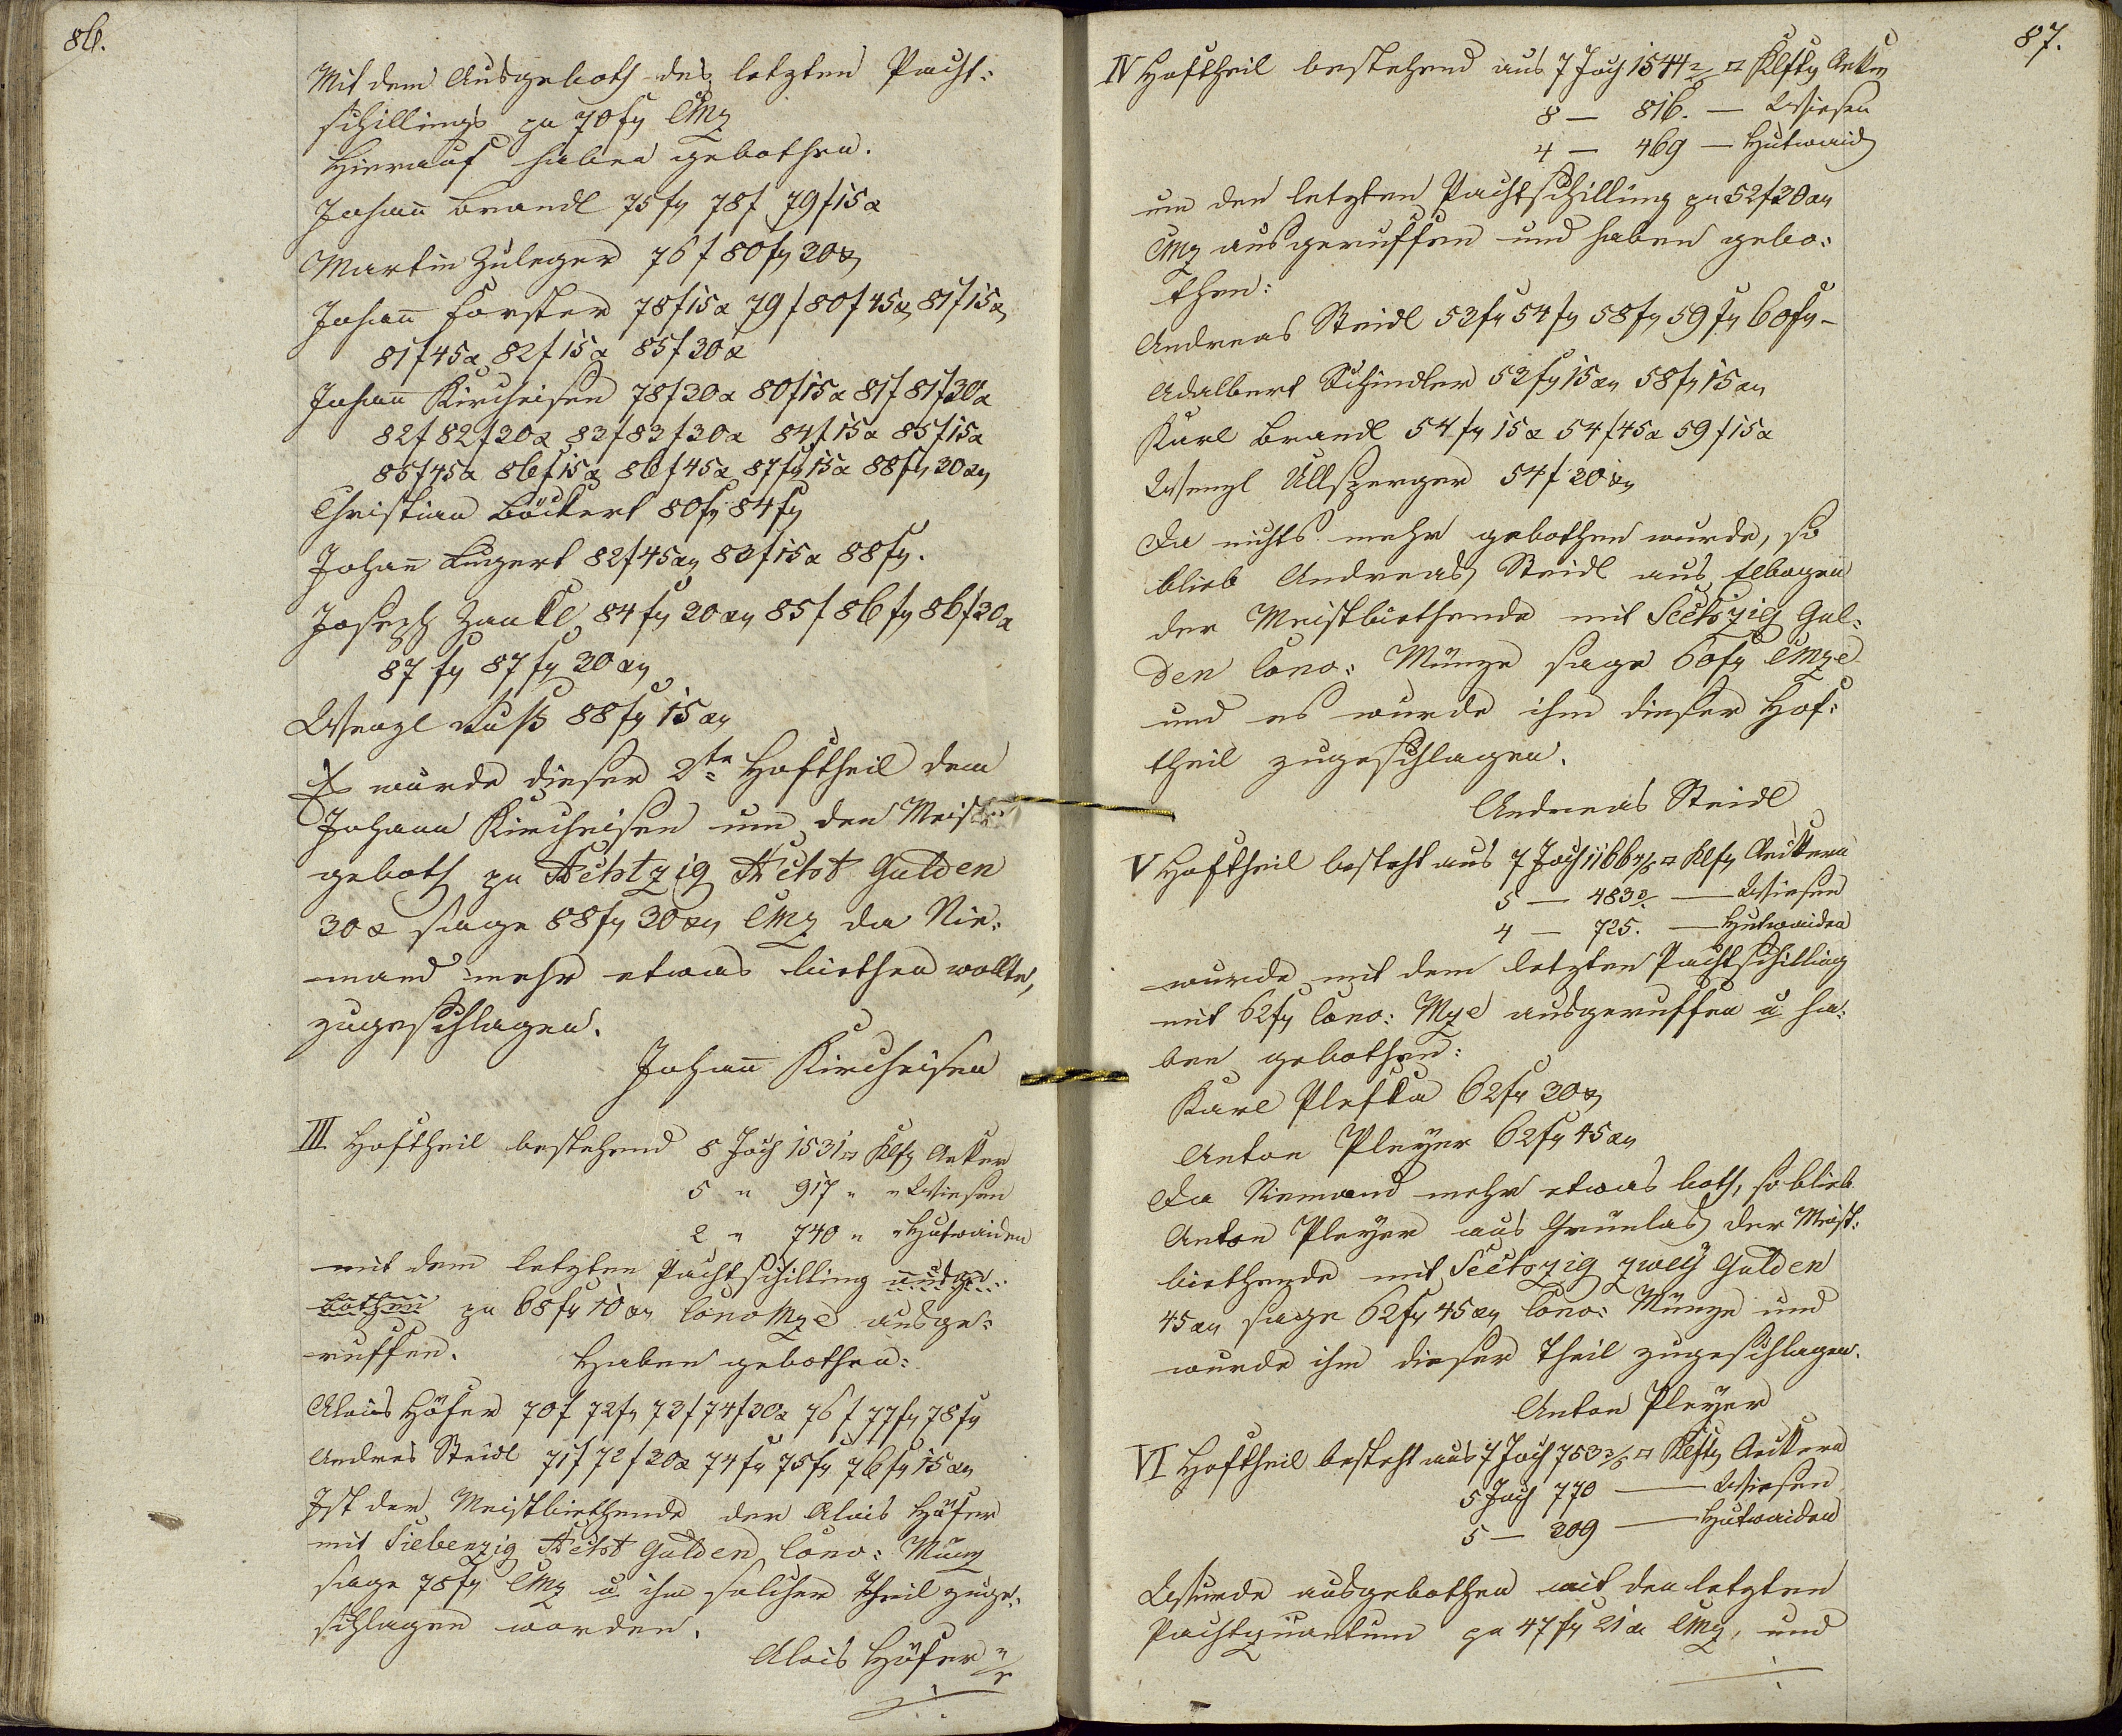 86.
Mit dem Ausgeboth des letzten Pacht-
schillings zu 70 fl CMz
Hierauf haben gebothen.
Johann Brandl 75 fl 78 f 79 f 15 x
Martin Zuleger 76 f 80 fl 30 x
Johann Forster 78 f 15 x 79 f 80 f 45 x 81 f 15 x
81 f 45 x 82 f 15 x 85 f 30 x
Johann Kircheisen 78 f 30 x 80 f 15 x 81 f 81 f 30 x
82 f 82 f 30 x 83 f 83 f 30 x 84 f 15 x 85 f 15 x
85 f 45 x 86 f 15 x 86 f 45 x 87 fl 15 x 88 fl 30 xr
Christian Böckert 80 fl 84 fl
Johann Lugert 82 f 45 xr 83 f 15 x 88 fl.
Joseph Zankl 84 fl 30 xr 85 f 86 fl 86 f 30 x
87 fl 87 fl 30 xr
Wenzl Kuß 88 fl 15 xr
Es wurde dieser 2te Hoftheil dem
Johann Kircheisen um den Meist-
geboth zu Achtzig Acht Gulden
30 x sage 88 fl 30 xr CMz da Nie-
mand mehr etwas biethen wollte,
zugeschlagen.
Johann Kircheisen
III Hoftheil bestehend 8 Joch 1531 □ Klft Aecker
5 " 917 " " Wiesen
2 " 740 " " Hutwaiden
mit dem letzten Pachtschilling ausge-
bothen zu 68 fl 10 xr Conv Mze ausge-
ruffen. Haben gebothen:
Alois Höfer 70 f 72 fl 73 f 74 f 30 x 76 f 77 fl 78 fl
Andres Steidl 71 f 72 f 30 x 74 fl 75 fl 76 fl 15 xr
Ist der Meistbiethende der Alois Höfer
mit Siebenzig Acht Gulden Conv: Münz
sage 78 fl CMz u ihm solcher Theil zuge-
schlagen worden.
Alois Höfer
87.
IV Hoftheil bestehend aus 7 Joch 1544 □ Klftr Aecker
8 — 816. — Wiesen
4 — 469 — Hutwaid
um den letzten Pachtschilling zu 52 f 30 xr
CMz ausgeruffen und haben gebo-
then:
Andreas Steidl 53 fl 54 fl 58 fl 59 fl 60 fl -
Adalbert Schindler 53 fl 15 xr 58 fl 15 xr
Karl Brandl 54 fl 15 x 54 f 45 x 59 f 15 x
Wenzl Ullsperger 54 f 30 xr
Da nichts mehr gebothen wurde, so
blieb Andreas Steidl aus Elbogen
der Meistbiethende mit Sechszig Gul-
den Conv: Münze sage 60 fl CMze
und es wurde ihm dieser Hof-
theil zugeschlagen.
Andreas Steidl
V Hoftheil besteht aus 7 Joch 1166 □ Klft Aeckern
5 — 483 — Wiesen
4 — 725. — Hutwaiden
wurde mit dem letzten Pachtschilling
mit 62 fl Conv: Mze ausgeruffen u ha-
ben gebothen:
Karl Plefka 62 fl 30 x
Anton Pleyer 62 fl 45 xr
Da Niemand mehr etwas both, so blieb
Anton Pleyer aus Grünlas der Meist-
biethende mit Sechszig zwey Gulden
45 xr sage 62 fl 45 xr Conv: Münze und
wurde ihm dieser Theil zugeschlagen.
Anton Pleyer
VI Hoftheil besteht aus 7 Joch 753 □ Klftr Aeckern
5 Joch 770 — Wiesen
5 — 209 — Hutwaiden
Wurde ausgebothen mit den letzten
Pachtquantum zu 47 fl 21 x CMz, und